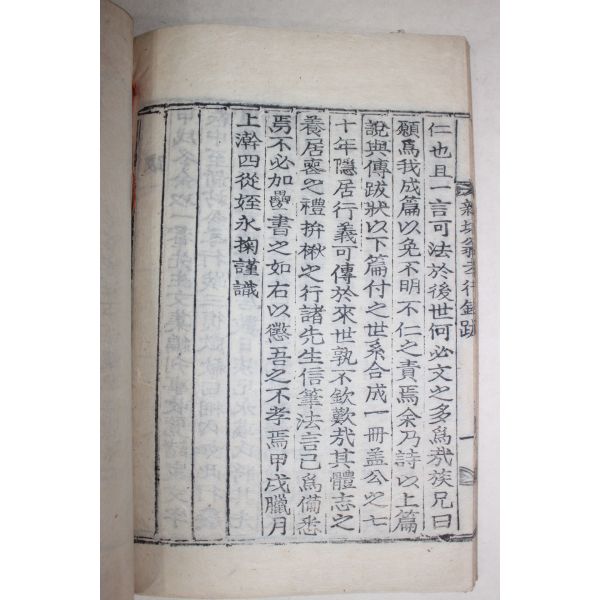 仁也且一言可法於後世何必文之多爲哉族兄曰
願爲我成篇以免不明不仁之責焉余乃詩以上篇
說與傳跋狀以下篇付之世系合成一冊盖公之七
十年隱居行義可傳於來世孰不欽歎哉其體志之
養居喪之禮拚楸之行諸先生信筆法言已爲備悉
焉不必加疊書之如右以懲吾之不孝焉甲戌臘月
上澣四從姪永掬謹識
行錄跋
一